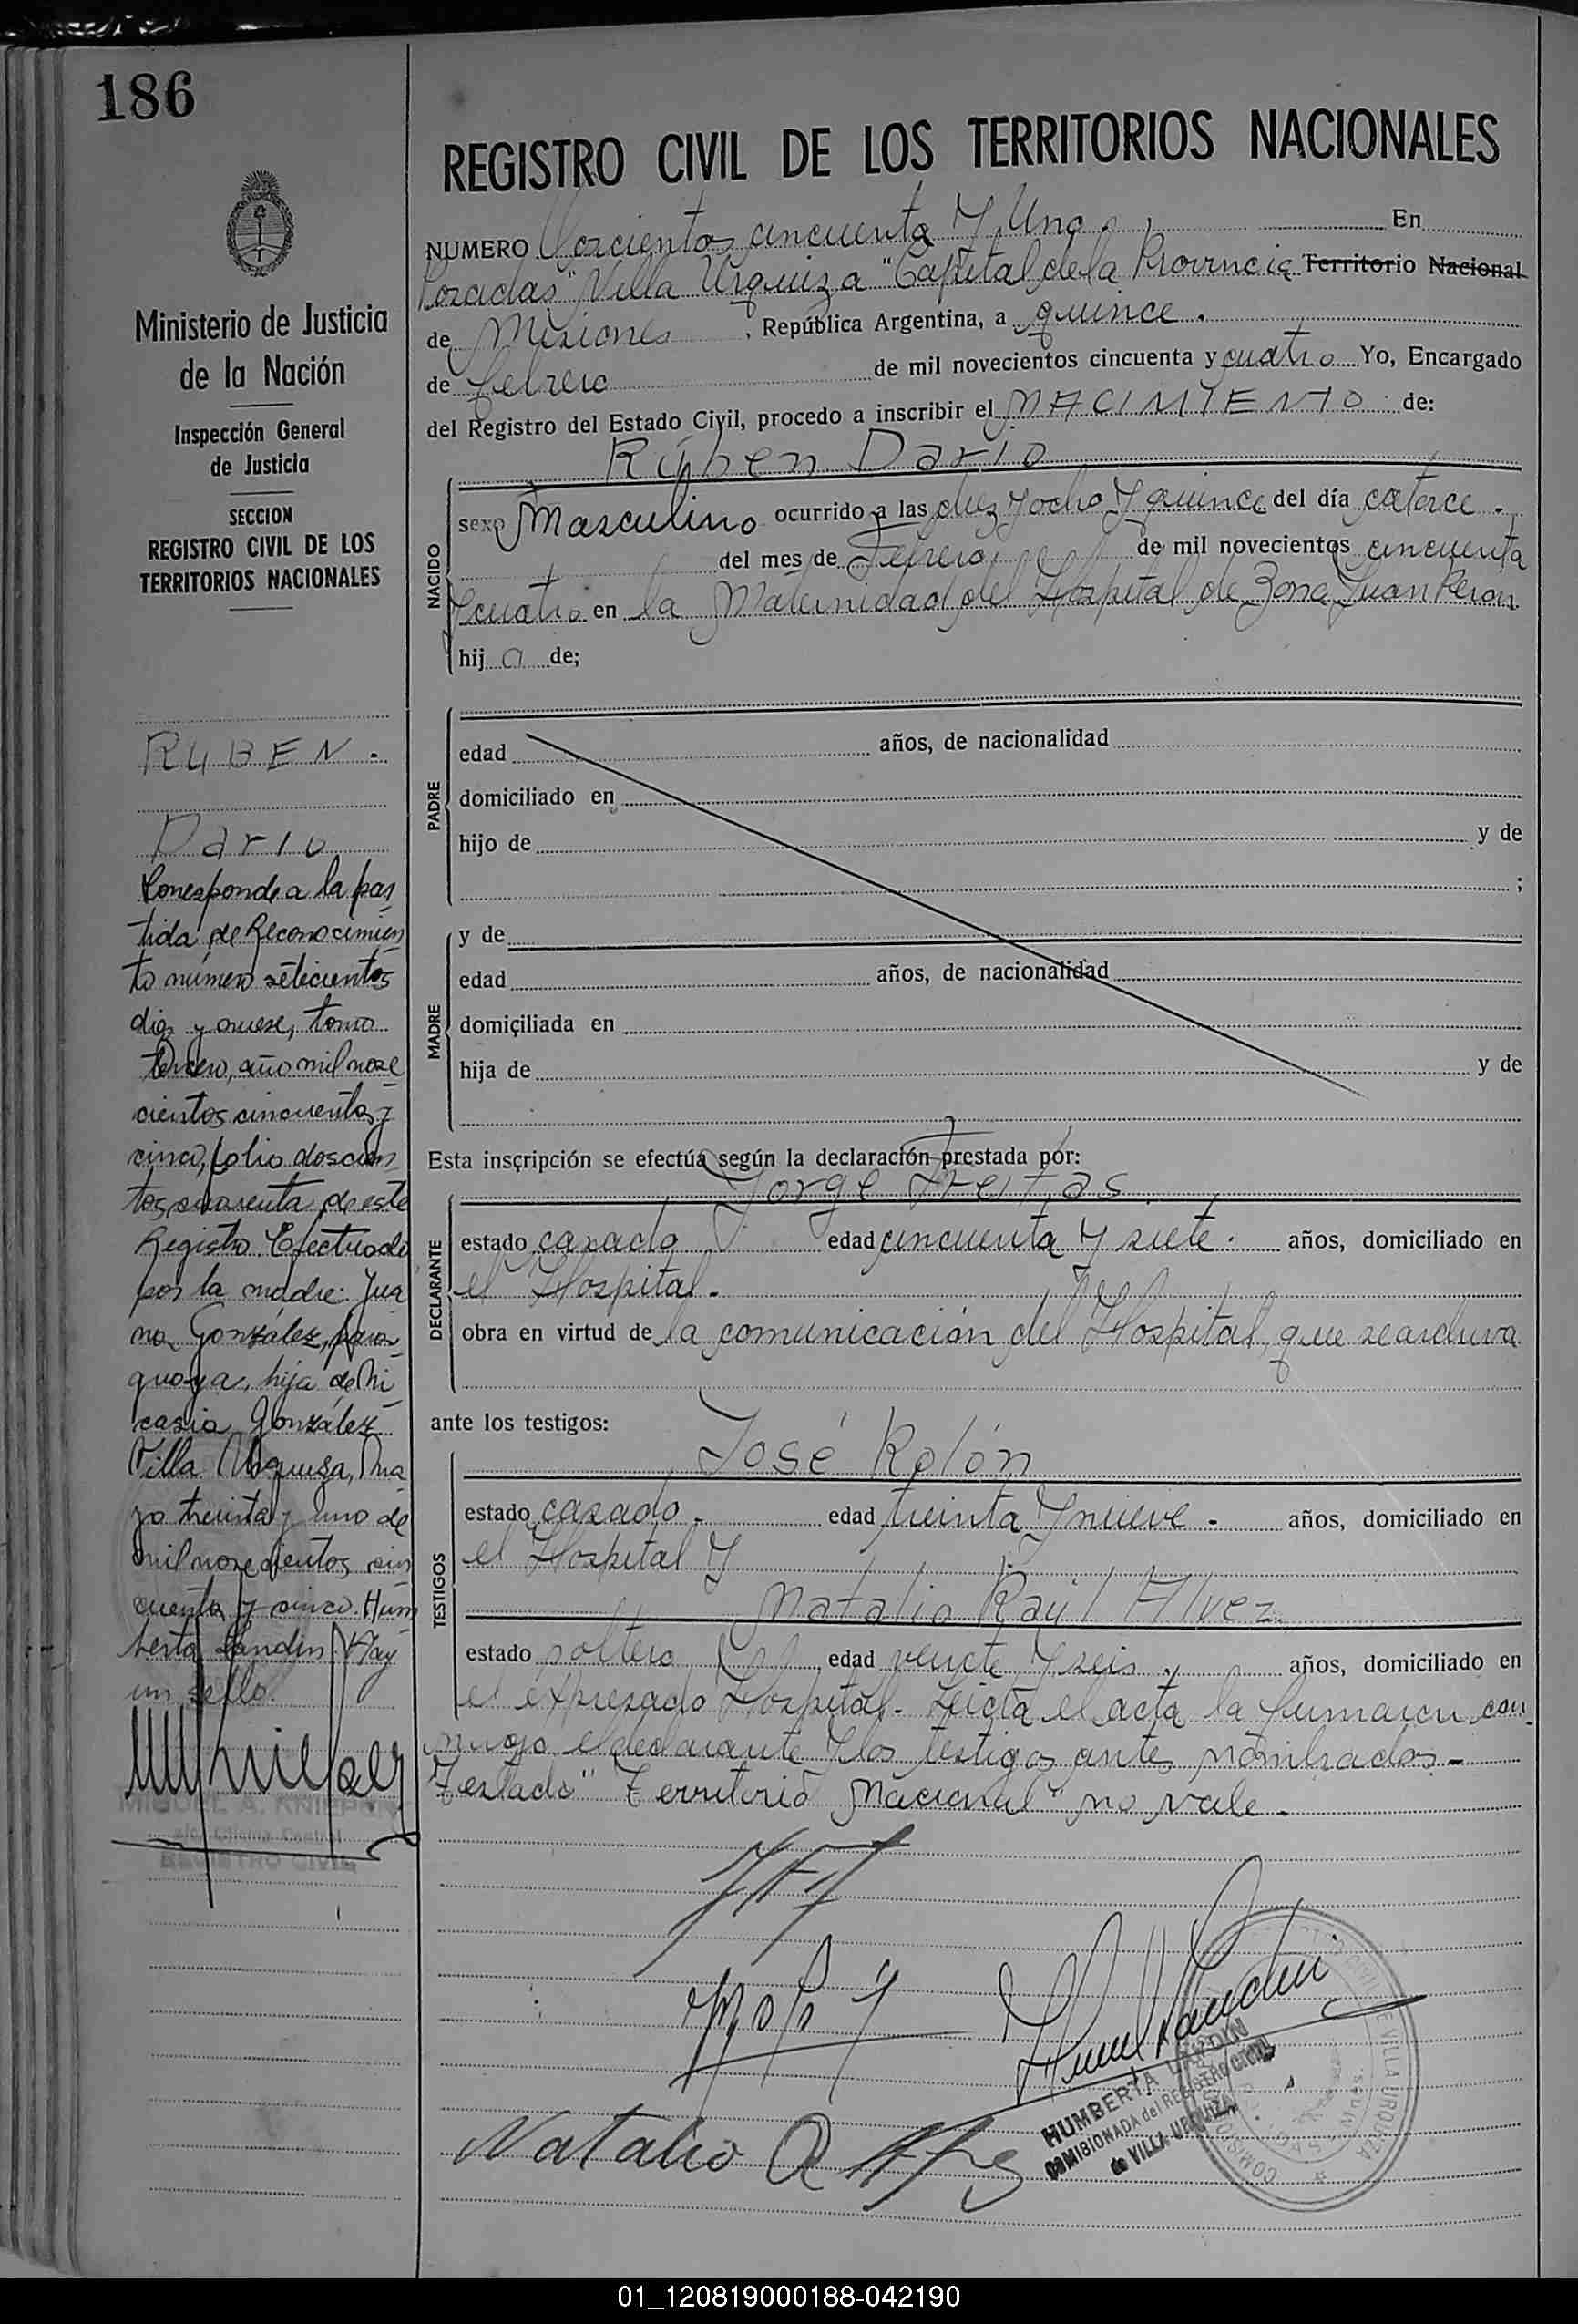 186
REGISTRO CIVIL DE LOS TERRITORIOS NACIONALES
NUMERO Doscientos cincuenta y Uno. En
Posadas "Villa Urquiza" Capital de la Provincia Territorio Nacional
de Misiones, República Argentina, a quince.
de febrero de mil novecientos cincuenta y cuatro Yo, Encargado
del Registro del Estado Civil, procedo a inscribir el NACIMIENTO de:
Rúben Darío
NACIDO
sexo Masculino ocurrido a las diez y ocho y quince del día catorce.
del mes de Febrero de mil novecientos cincuenta
y cuatro en la Maternidad del Hospital de Zona Juan Perón
hij o de;
PADRE
edad años, de nacionalidad
domiciliado en
hijo de y de
;
MADRE
y de
edad años, de nacionalidad
domiciliada en
hija de y de
Esta inscripción se efectúa según la declaración prestada por:
Jorge Freitas
DECLARANTE
estado casado edad cincuenta y siete. años, domiciliado en
el Hospital.
obra en virtud de la comunicación del Hospital, que se archiva
ante los testigos:
José Rolón
TESTIGOS
estado casado. edad treinta y nueve. años, domiciliado en
el Hospital y
Natalio Raúl Alvez
estado soltero edad veinte y seis. años, domiciliado en
el expresado Hospital. Leída el acta la firmaron con
migo el declarante y los testigos antes nombrados.-
Testado "Territorio Nacional" no vale.
Natalio R
HUMBERTA LANDIN
COMISIONADA del REGISTRO CIVIL
de VILLA URQUIZA
Ministerio de Justicia
de la Nación
Inspección General
de Justicia
SECCION
REGISTRO CIVIL DE LOS
TERRITORIOS NACIONALES
RUBEN.
Dario
Corresponde a la par
tida de Reconocimien
to número setecientos
diez y nueve, tomo
tercero, año mil nove
cientos cincuenta y
cinco, folio doscien
tos cuarenta de este
Registro. Efectuado
por la madre: Jua
na González, para
guaya, hija de Ni
casia González
Villa Urquiza, Ma
yo treinta y uno de
mil novecientos cin
cuenta y cinco. Hum
berta Landin. Hay
un sello.
MIGUEL A. KNIEPER
Oficina Central
REGISTRO CIVIL
01_120819000188-042190